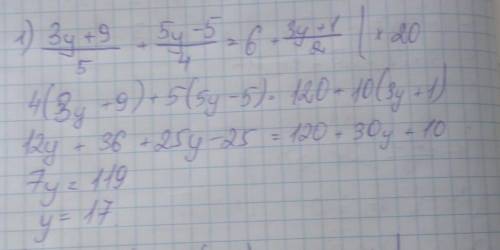 1) (3y+9)/5 + (5y-5)/4 = 6 + (3y+1)/2 | · 20
4(3y+9)+5(5y-5) = 120+10(3y+1)
12y + 36 + 25y-25 = 120+30y+10
7y = 119
y = 17